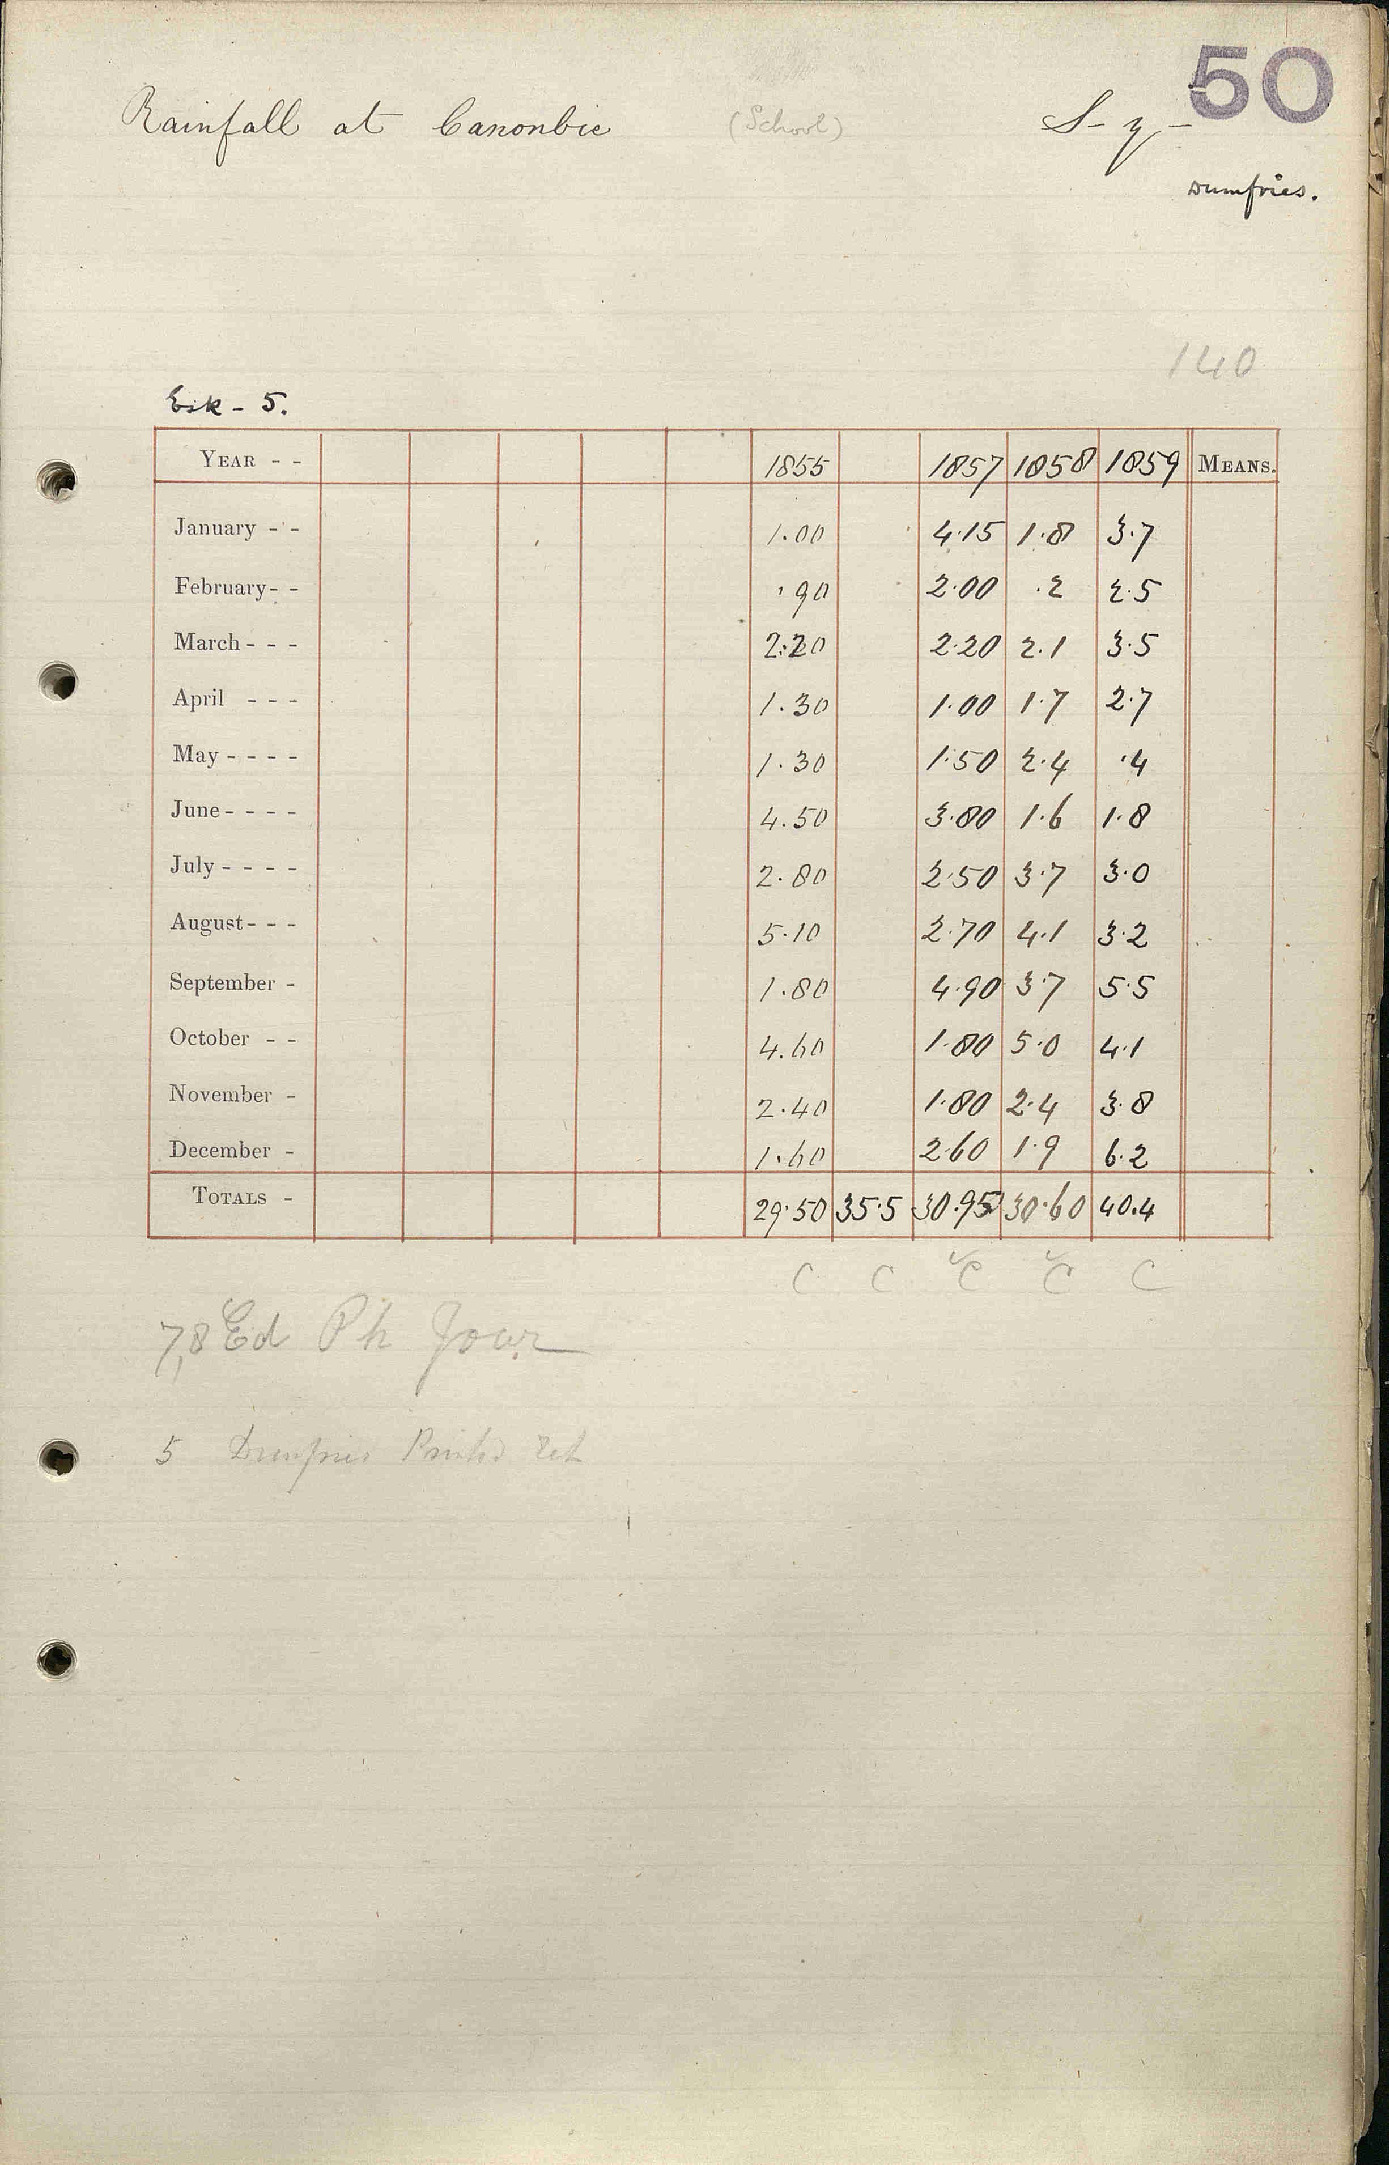 50
Rainfall at Canonbie (School) S-y-
Dumfries.
140
Esk - 5.
YEAR - - 1855 1857 1858 1859 MEANS.
January - - 1.00 4.15 1.8 3.7
February - - .90 2.00 .2 2.5
March - - - 2.20 2.20 2.1 3.5
April - - - 1.30 1.00 1.7 2.7
May - - - - 1.30 1.50 2.4 .4
June - - - - 4.50 3.80 1.6 1.8
July - - - - 2.80 2.50 3.7 3.0
August - - - 5.10 2.70 4.1 3.2
September - 1.80 4.90 3.7 5.5
October - - 4.60 1.80 5.0 4.1
November - 2.40 1.80 2.4 3.8
December - 1.60 2.60 1.9 6.2
TOTALS - 29.50 35.5 30.95 30.60 40.4
C C C C C
7,8 Ed Ph Jour
5 Dumfries Printed Ret